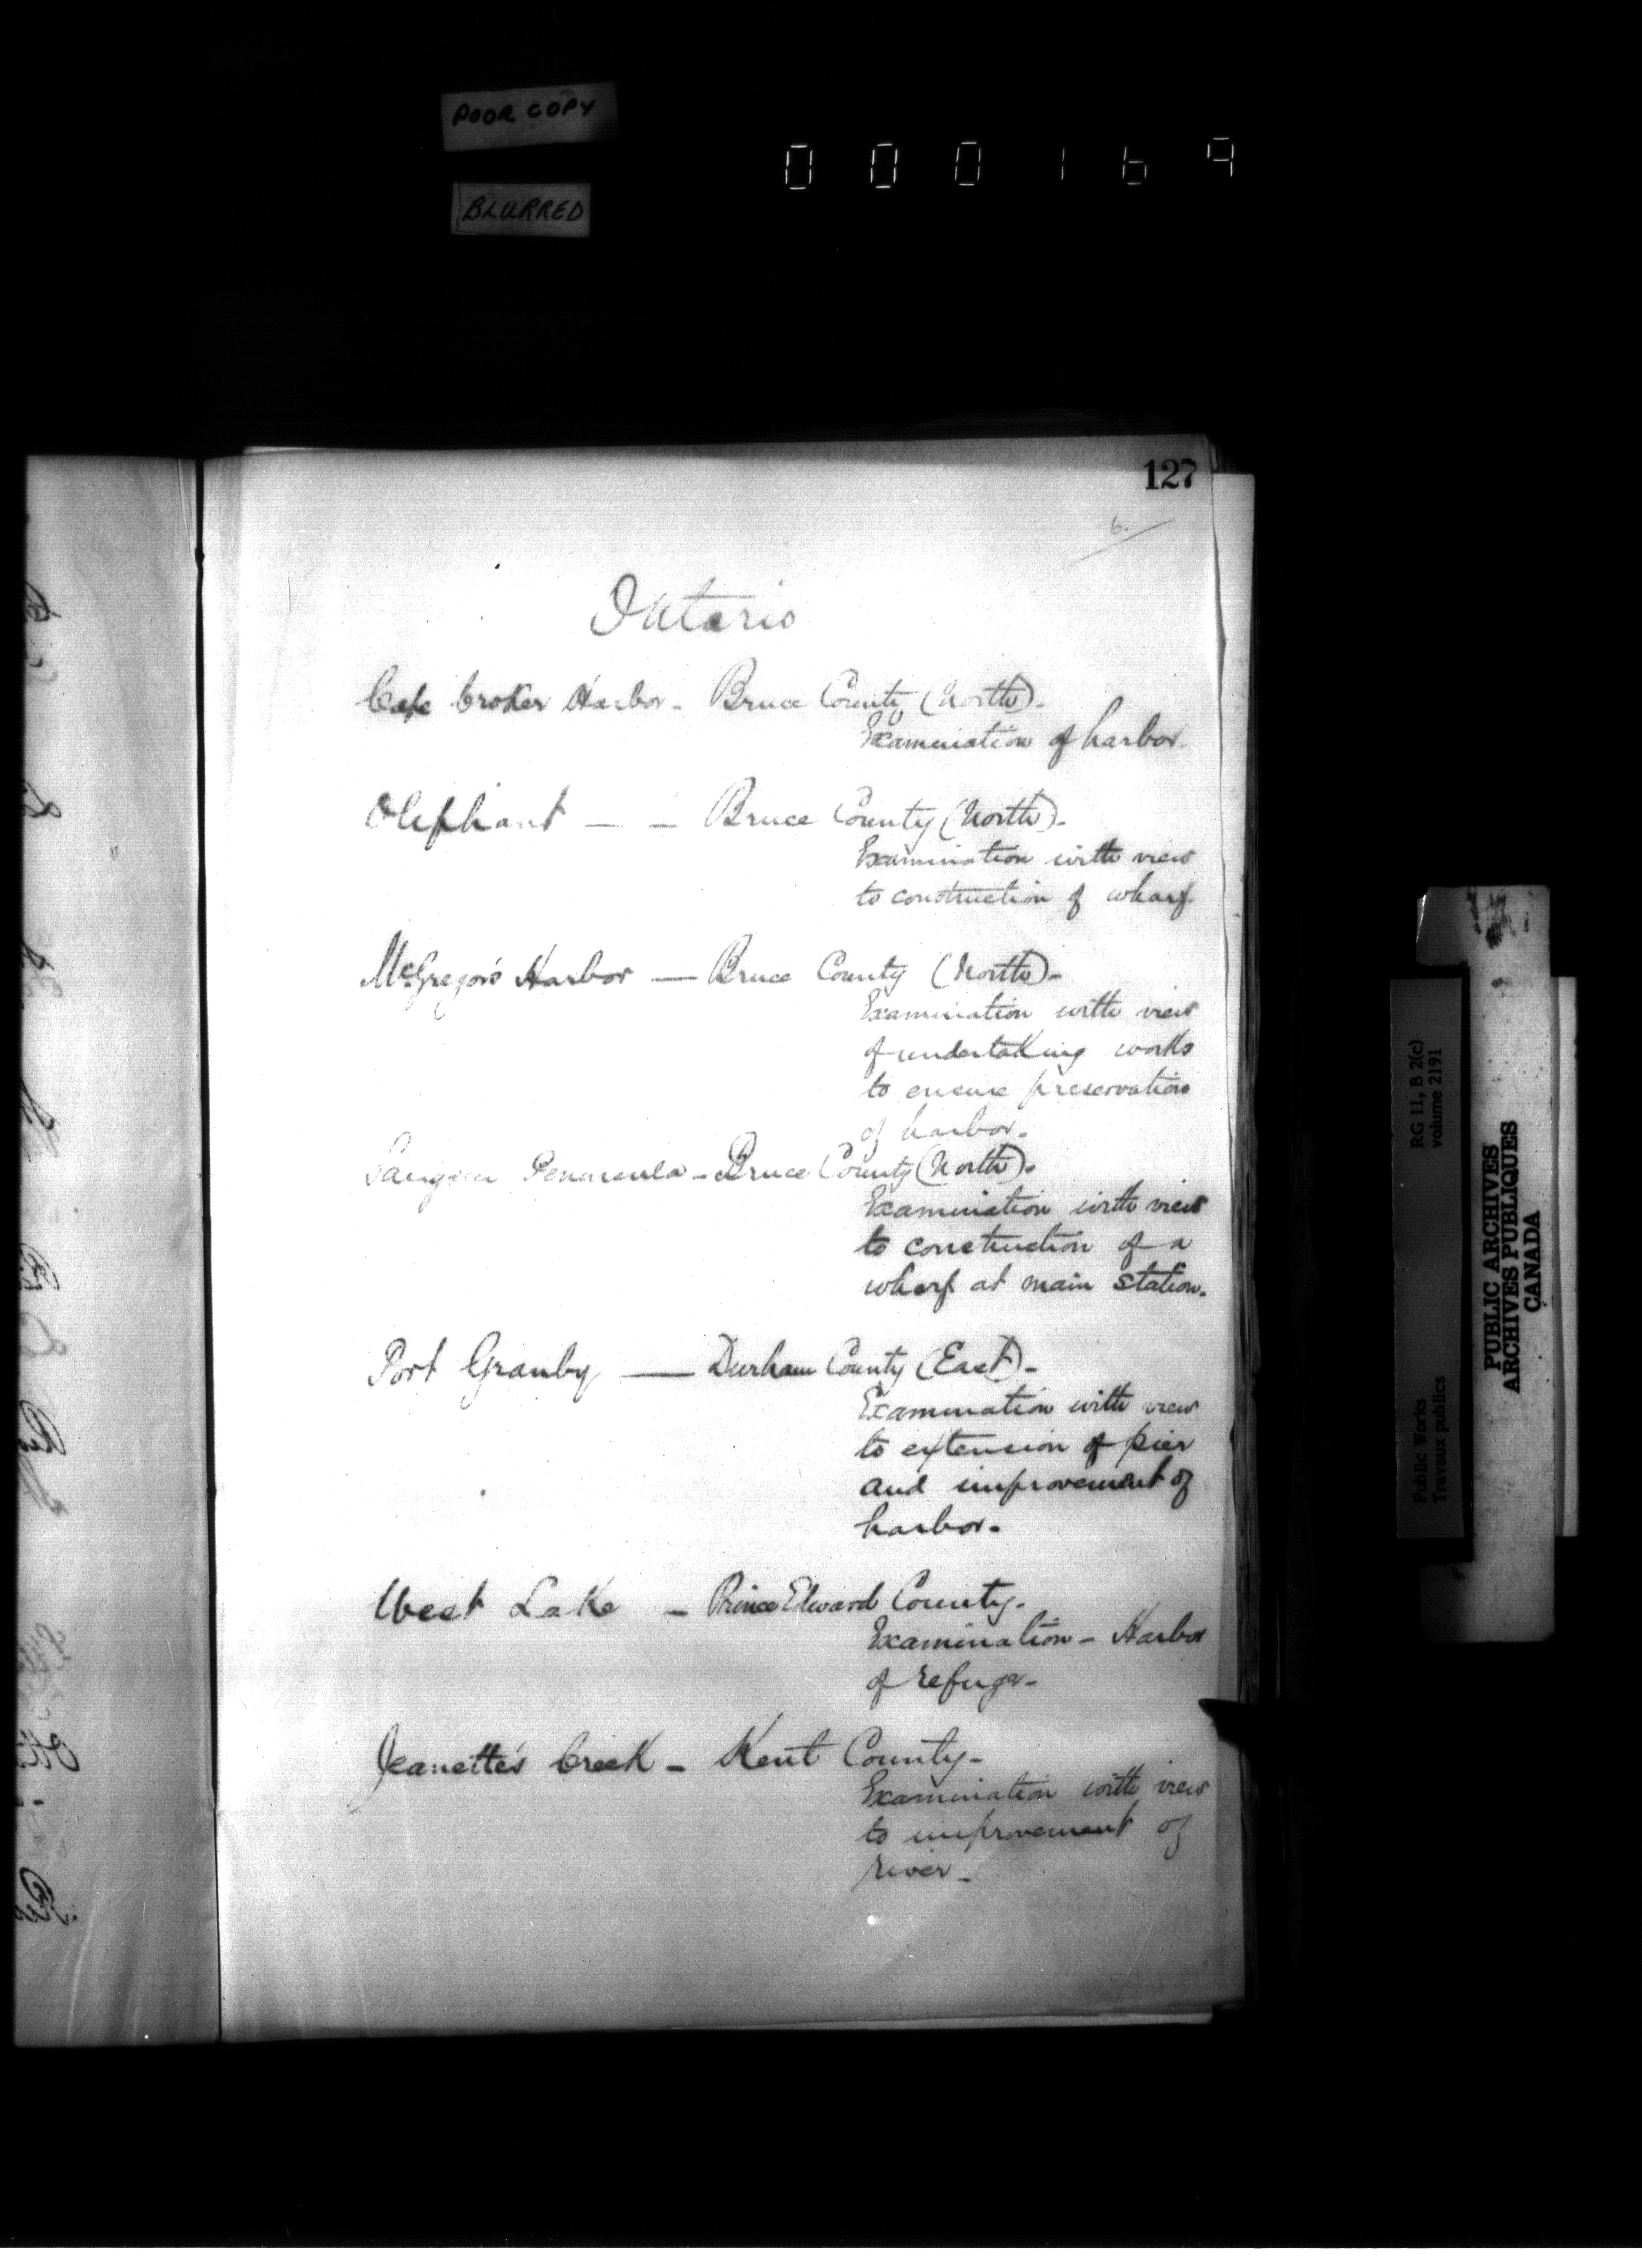 POOR COPY
BLURRED
000169
127
6.
Ontario
Cape Croker Harbor - Bruce County (North) -
Examination of harbor.
Oliphant - - Bruce County (North) -
Examination with view
to construction of wharf.
McGregor's Harbor - Bruce County (North) -
Examination with view
of undertaking works
to ensure preservation
of harbor.
Saugeen Peninsula - Bruce County (North) -
Examination with view
to construction of a
wharf at main station.
Port Granby - Durham County (East) -
Examination with view
to extension of pier
and improvement of
harbor -
West Lake - Prince Edward County -
Examination - Harbor
of refuge -
Jeanette's Creek - Kent County -
Examination with view
to improvement of
river -
RG 11, B 2(c)
volume 2191
Public Works
Travaux publics
PUBLIC ARCHIVES
ARCHIVES PUBLIQUES
CANADA